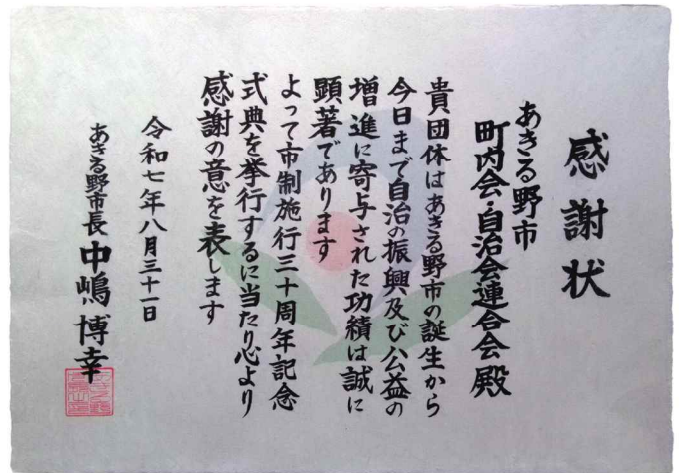 感謝状
あきる野市
町内会・自治会連合会殿
貴団体はあきる野市の誕生から
今日まで自治の振興及び公益の
増進に寄与された功績は誠に
顕著であります
よって市制施行三十周年記念
式典を挙行するに当たり心より
感謝の意を表します
令和七年八月三十一日
あきる野市長 中嶋博幸